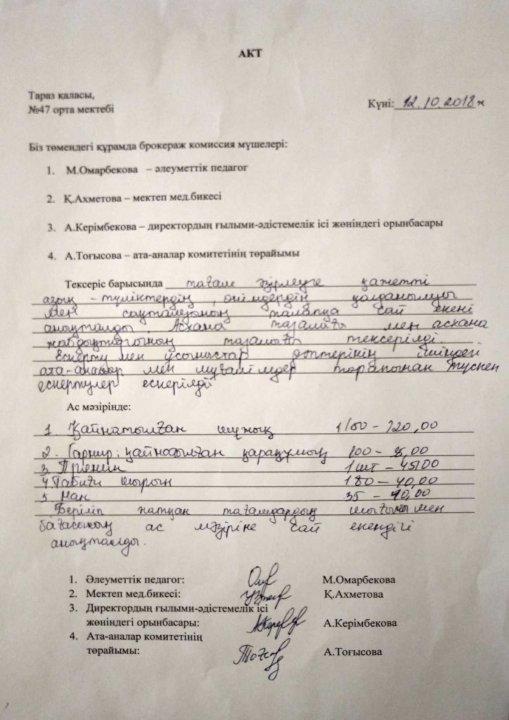 АКТ
Тараз қаласы,
№47 орта мектебі
Күні: 12.10.2018ж
Біз төмендегі құрамда брокераж комиссия мүшелері:
1. М.Омарбекова – әлеуметтік педагог
2. Қ.Ахметова – мектеп мед.бикесі
3. А.Керімбекова – директордың ғылыми-әдістемелік ісі жөніндегі орынбасары
4. А.Тоғысова – ата-аналар комитетінің төрайымы
Тексеріс барысында тағам әзірлеуге қажетті
азық-түліктердің, өнімдердің қолданылуы
мен сақталуының талапқа сай екені
анықталды. Асхана тазалығы мен асхана
жабдықтарының тазалығы тексерілді.
Ескерту мен ұсыныстар дәптерінің ішіндегі
ата-аналар мен мұғалімдер тарапынан түскен
ескертулер ескерілді
Ас мәзірінде:
1. Қайнатылған шұжық 1/00 – 120,00
2. Гарнир: қайнатылған қарақұмық 100 –
3. Пряник 1 шт – 45,00
4. Табиғи шырын 180 – 40,00
5. Нан 35 – 10,00
Беріліп жатқан тағамдардың шығымы мен
бағасының ас мәзіріне сай екендігі
анықталды.
1. Әлеуметтік педагог: М.Омарбекова
2. Мектеп мед.бикесі: Қ.Ахметова
3. Директордың ғылыми-әдістемелік ісі
жөніндегі орынбасары: А.Керімбекова
4. Ата-аналар комитетінің
төрайымы: А.Тоғысова